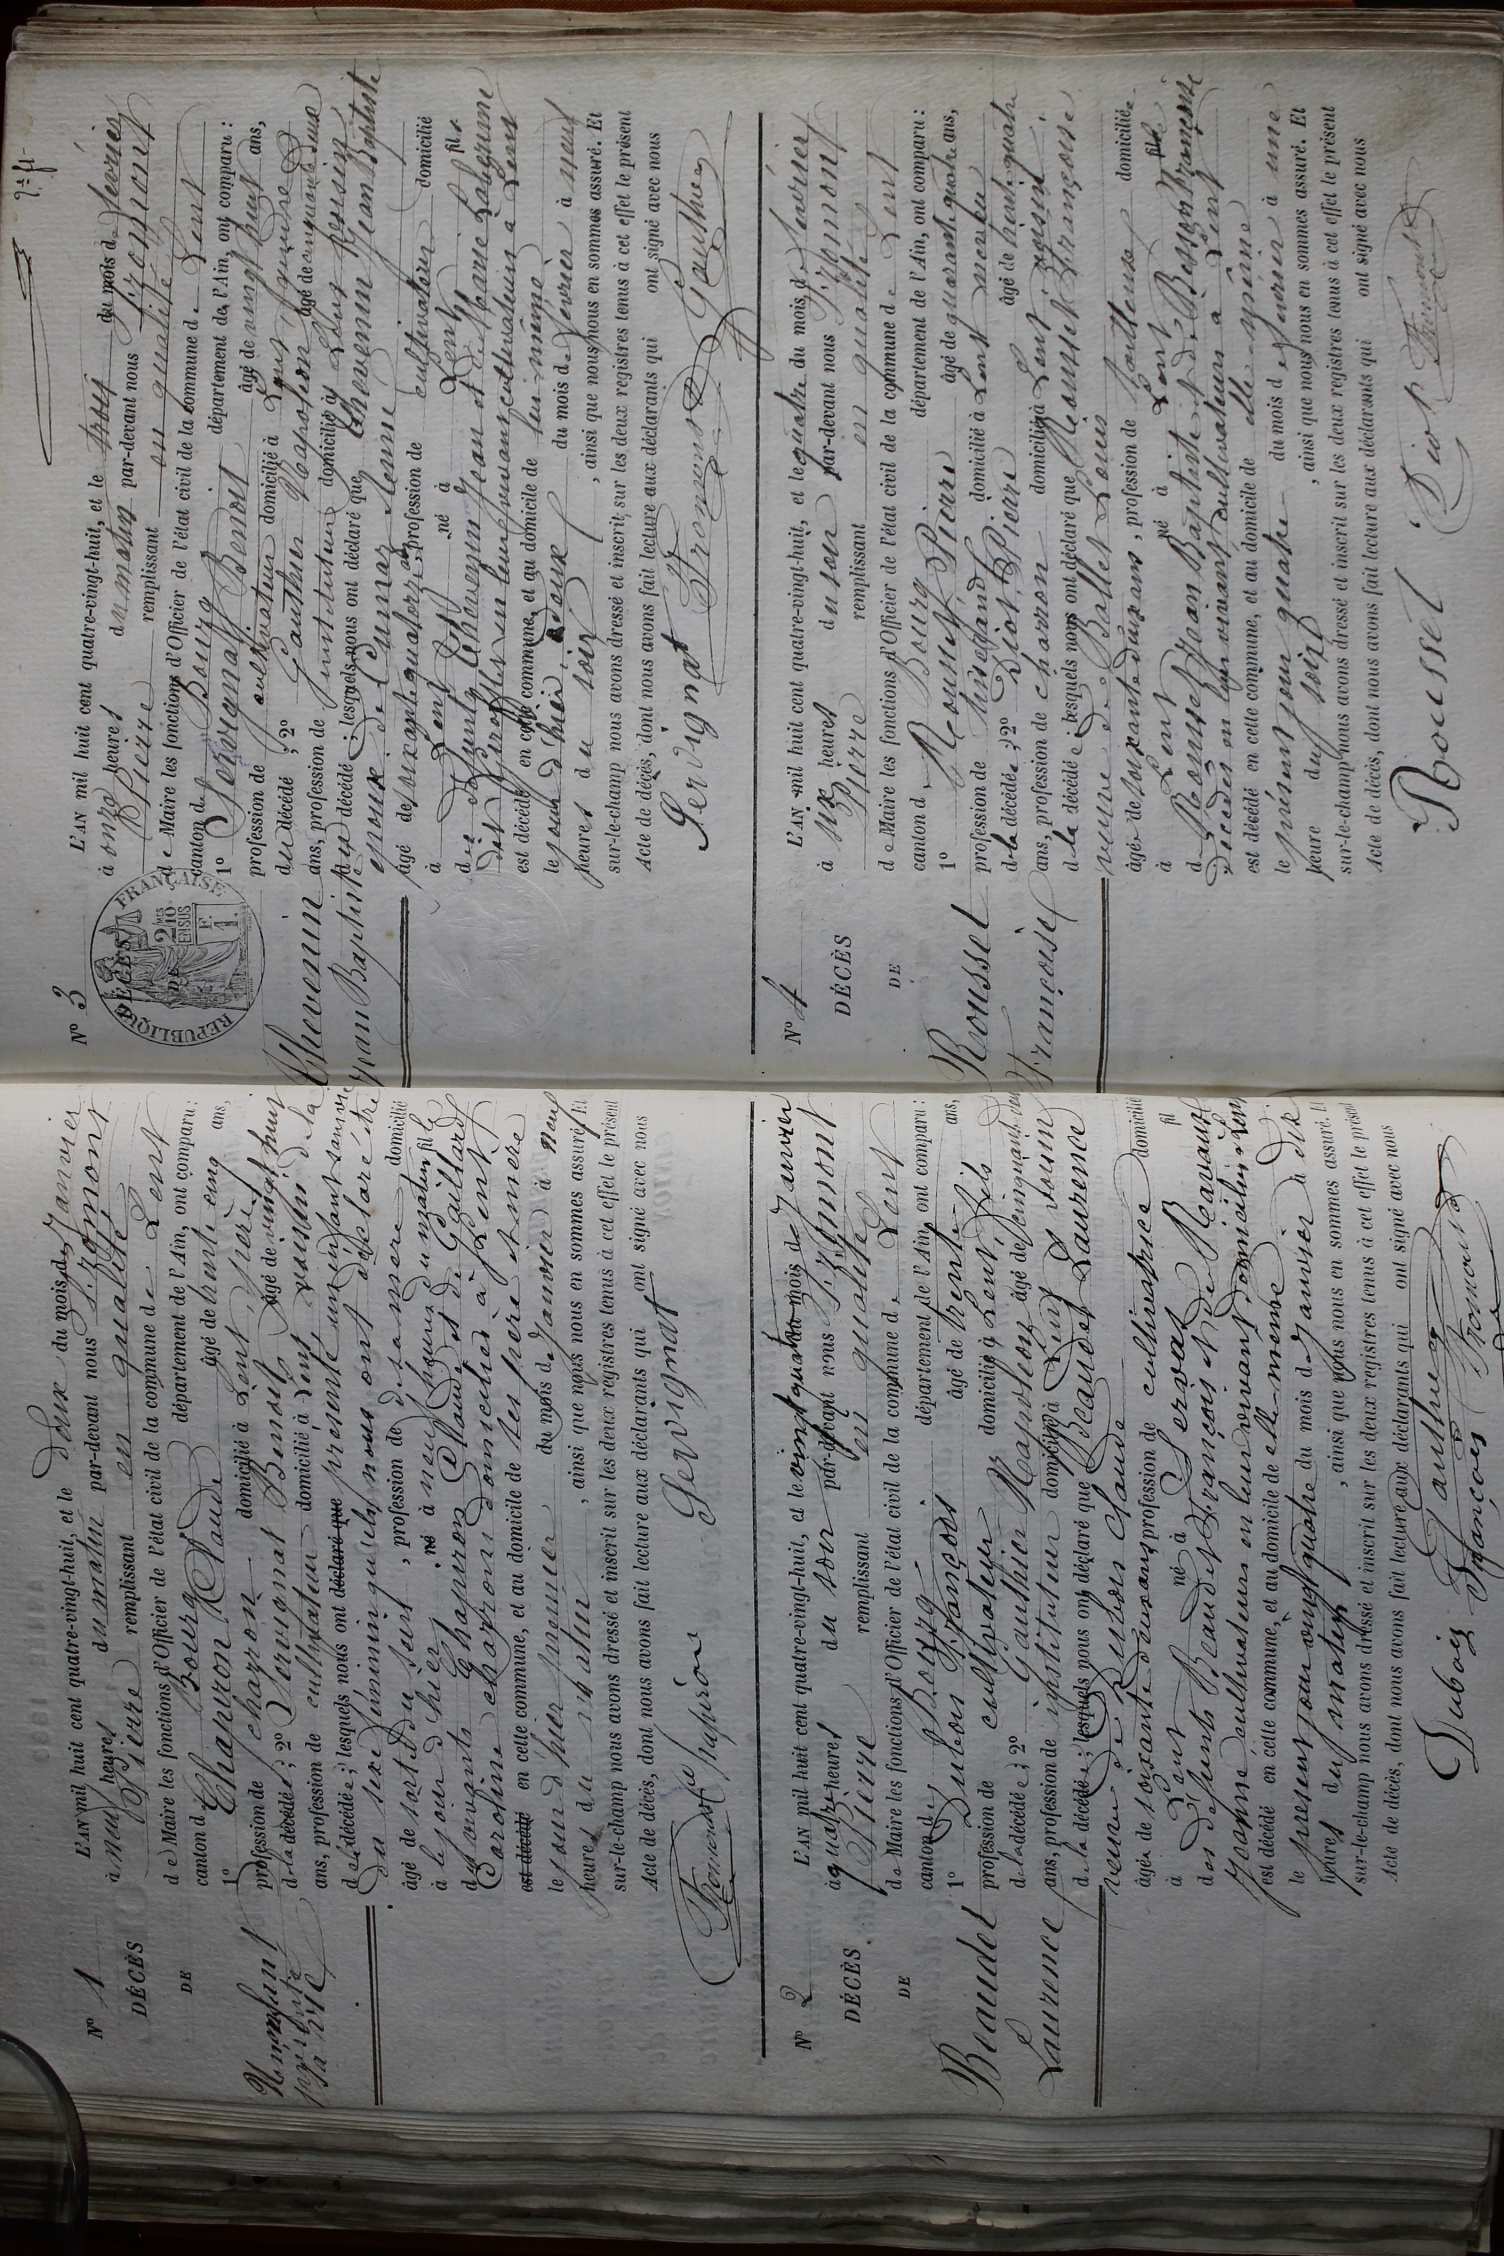 N° 1
DÉCÈS
DE
Un enfant
présenté
sans vie
L'AN mil huit cent quatre-vingt-huit, et le deux du mois de Janvier
à neuf heures du matin par-devant nous Fromont
Pierre remplissant en qualité
de Maire les fonctions d'Officier de l'état civil de la commune de Lent
canton de Bourg département de l'Ain, ont comparu :
1° Chapiron Claude âgé de trente cinq ans,
profession de charron domicilié à Lent, père
de la décédée ; 2° Servignat Benoit âgé de vingt huit
ans, profession de cultivateur domicilié à Lent voisin de la
de la décédée ; lesquels nous ont déclaré que présenté un enfant sans vie
du sexe féminin qu'ils nous ont déclaré être
âgé de sorti du sein, profession de de sa mère domicilié
à le jour d'hier né à neuf heures du matin fille
des suivants Chapiron Claude et de Gaillard
Caroline charrons domiciliés à Lent
est décédé en cette commune, et au domicile de ses père et mère
le jour d'hier premier du mois de Janvier à neuf
heures du matin, ainsi que nous nous en sommes assuré. Et
sur-le-champ nous avons dressé et inscrit sur les deux registres tenus à cet effet le présent
Acte de décès, dont nous avons fait lecture aux déclarants qui ont signé avec nous
Chapiron Servignat
Fromont
N° 2
DÉCÈS
DE
Beaudet
Laurence
L'AN mil huit cent quatre-vingt-huit, et le vingt quatre du mois de Janvier
à quatre heures du soir par-devant nous Fromont
Pierre remplissant en qualité
de Maire les fonctions d'Officier de l'état civil de la commune de Lent
canton de Bourg département de l'Ain, ont comparu :
1° Dubois François âgé de trente ans,
profession de cultivateur domicilié à Lent, fils
de la décédée ; 2° Gauthier Napoléon âgé de cinquante deux
ans, profession de instituteur domicilié à Lent voisin
de la décédée ; lesquels nous ont déclaré que Beaudet Laurence
veuve de Dubois Claude
âgée de soixante deux ans, profession de cultivatrice domicilié
à Lent né à Servas fil
des défunts Beaudet François et de Ravaux
Jeanne cultivateurs en leur vivant domiciliés à Lent
est décédé en cette commune, et au domicile de elle-même
le présent jour vingt quatre du mois de Janvier à dix
heures du matin, ainsi que nous nous en sommes assuré. Et
sur-le-champ nous avons dressé et inscrit sur les deux registres tenus à cet effet le présent
Acte de décès, dont nous avons fait lecture aux déclarants qui ont signé avec nous
Gauthier
Dubois François Fromont
N° 3
DÉCÈS
DE
RÉPUBLIQUE FRANÇAISE
Thevenin
Jean Baptiste
L'AN mil huit cent quatre-vingt-huit, et le trois du mois de Février
à onze heures du matin par-devant nous Fromont
Pierre remplissant en qualité
de Maire les fonctions d'Officier de l'état civil de la commune de Lent
canton de Bourg département de l'Ain, ont comparu :
1° Servignat Benoit âgé de vingt huit ans,
profession de cultivateur domicilié à Lent, gendre
du décédé ; 2° Gauthier Napoléon âgé de cinquante deux
ans, profession de instituteur domicilié à Lent voisin
du décédé ; lesquels nous ont déclaré que Thevenin Jean Baptiste
époux de Cunnaz Jenne
âgé de soixante quatorze ans, profession de cultivateur domicilié
à Lent né à Lent fils
des défunts Thevenin Jean et de Marie
est décédé en cette commune, et au domicile de lui même
le jour d'hier deux du mois de Février à neuf
heures du soir, ainsi que nous nous en sommes assuré. Et
sur-le-champ nous avons dressé et inscrit sur les deux registres tenus à cet effet le présent
Acte de décès, dont nous avons fait lecture aux déclarants qui ont signé avec nous
Servignat Fromont Gauthier
N° 4
DÉCÈS
DE
Rousset
Françoise
L'AN mil huit cent quatre-vingt-huit, et le quatre du mois de Février
à six heures du soir par-devant nous Fromont
Pierre remplissant en qualité
de Maire les fonctions d'Officier de l'état civil de la commune de Lent
canton de Bourg département de l'Ain, ont comparu :
1° Rousset Pierre âgé de quarante quatre ans,
profession de domicilié à Lent neveu
de la décédée ; 2° Diot Pierre âgé de trente quatre
ans, profession de charron domicilié à Lent voisin
de la décédée ; lesquels nous ont déclaré que Rousset Françoise
veuve de Ballet Louis
âgée de soixante deux ans, profession de domiciliée
à Lent né à Lent fille
de Rousset Jean Baptiste et de Besson Françoise
décédés en leur vivant cultivateurs à Lent
est décédé en cette commune, et au domicile de elle même
le présent jour quatre du mois de Février à une
heure du soir, ainsi que nous nous en sommes assuré. Et
sur-le-champ nous avons dressé et inscrit sur les deux registres tenus à cet effet le présent
Acte de décès, dont nous avons fait lecture aux déclarants qui ont signé avec nous
Rousset Diot Fromont